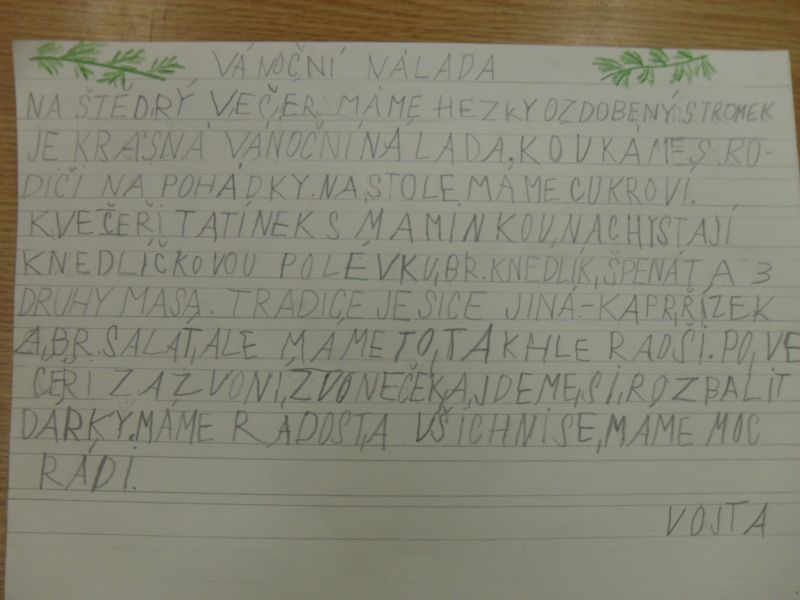 VÁNOČNÍ NÁLADA
NA ŠTĚDRÝ VEČER MÁME HEZKY OZDOBENÝ STROMEK
JE KRÁSNÁ VÁNOČNÍ NÁLADA, KOUKÁME S RO-
DIČI NA POHÁDKY. NA STOLE MÁME CUKROVÍ.
K VEČEŘI TATÍNEK S MAMÍNKOU, NACHYSTAJÍ
KNEDLÍČKOVOU POLÉVKU, BR. KNEDLÍK, ŠPENÁT A 3
DRUHY MASA. TRADICE JE SICE JINÁ - KAPR, ŘÍZEK
A, BR. SALÁT, ALE MÁME TO, TAKHLE RADŠI. PO, VE
ČEŘI ZAZVONÍ, ZVONEČEK, A, JDEME, SI, ROZBALIT
DÁRKY. MÁME RADOST, A VŠICHNI SE, MÁME MOC
RÁDI.
VOJTA